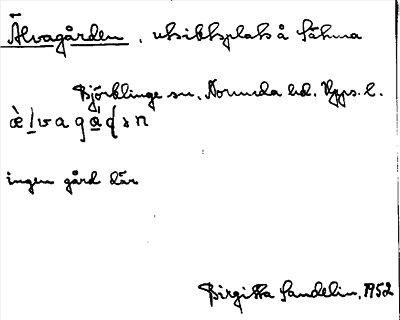 Älvagården, utsiktsplats å Sähma
Björklinge sn. Norunda hd. Upps. l.
æ̀lvagąɖən
ingen gård där
Birgitta Sandelin, 1952